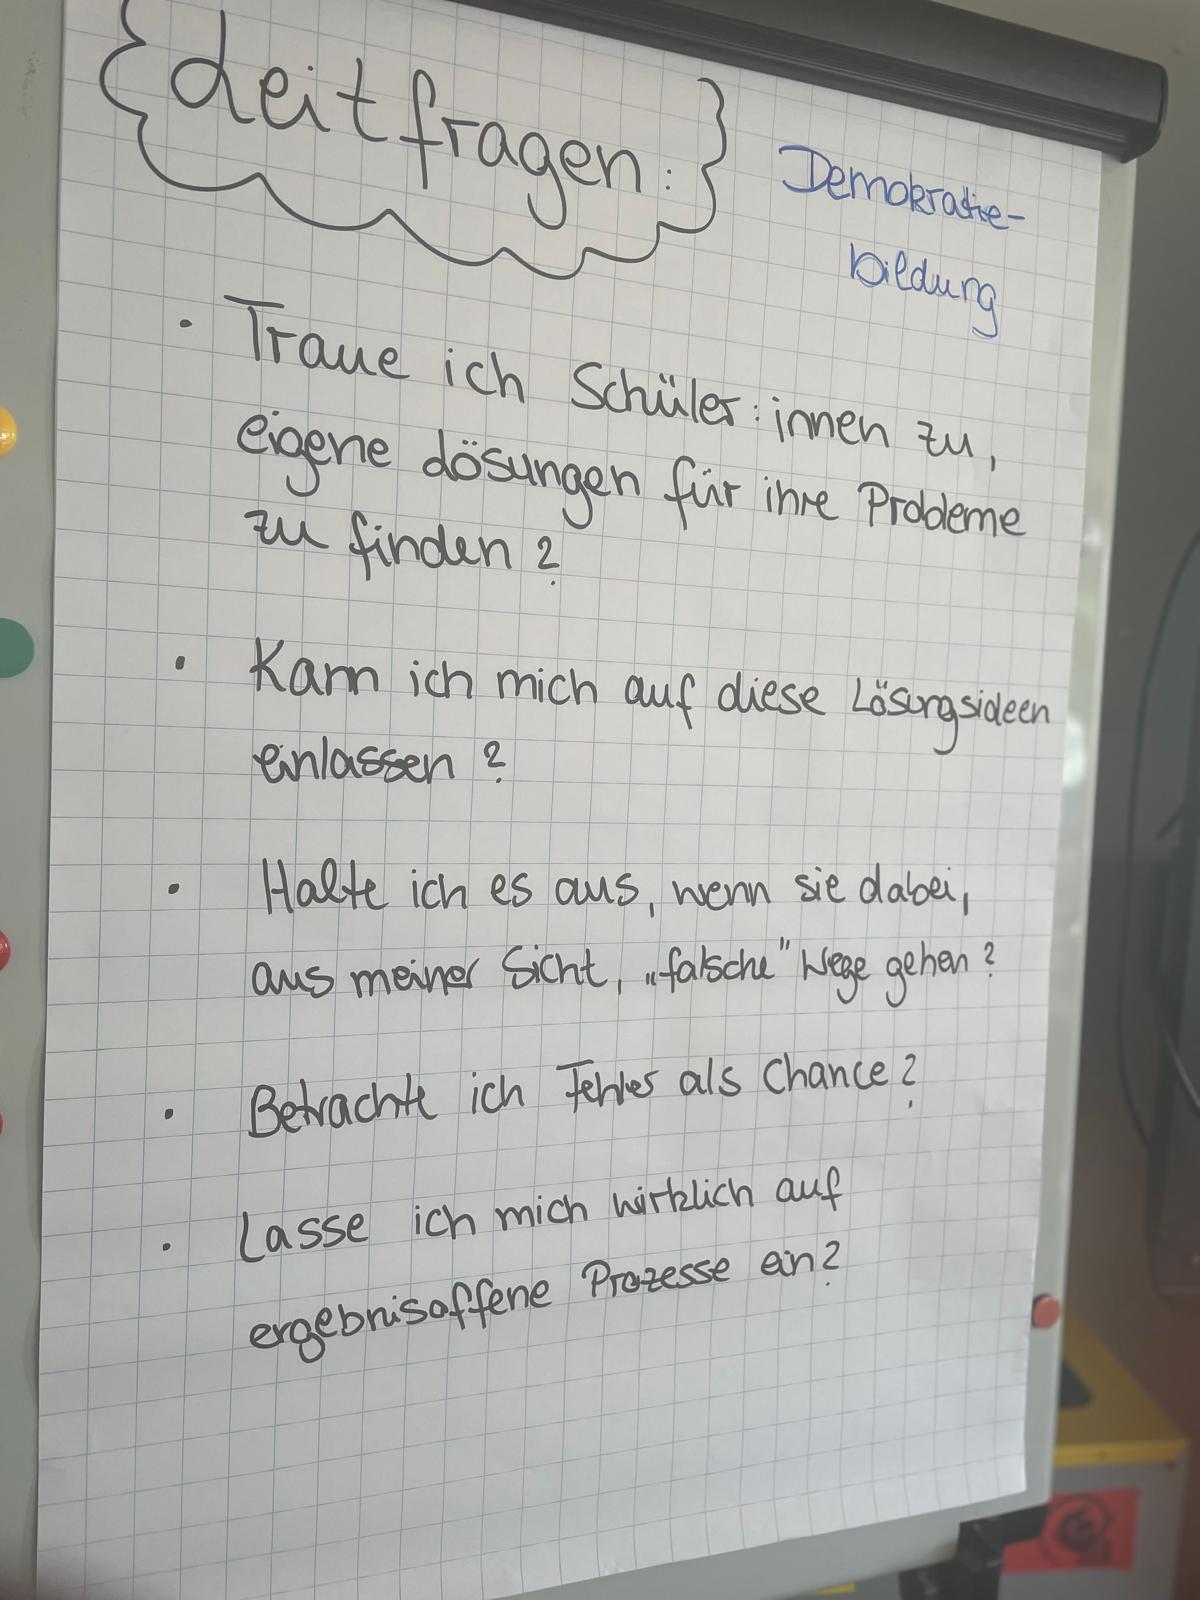 Leitfragen:
Demokratie-
bildung
· Traue ich Schüler:innen zu,
eigene Lösungen für ihre Probleme
zu finden?
· Kann ich mich auf diese Lösungsideen
einlassen?
· Halte ich es aus, wenn sie dabei,
aus meiner Sicht, „falsche" Wege gehen?
· Betrachte ich Fehler als Chance?
· Lasse ich mich wirklich auf
ergebnisoffene Prozesse ein?